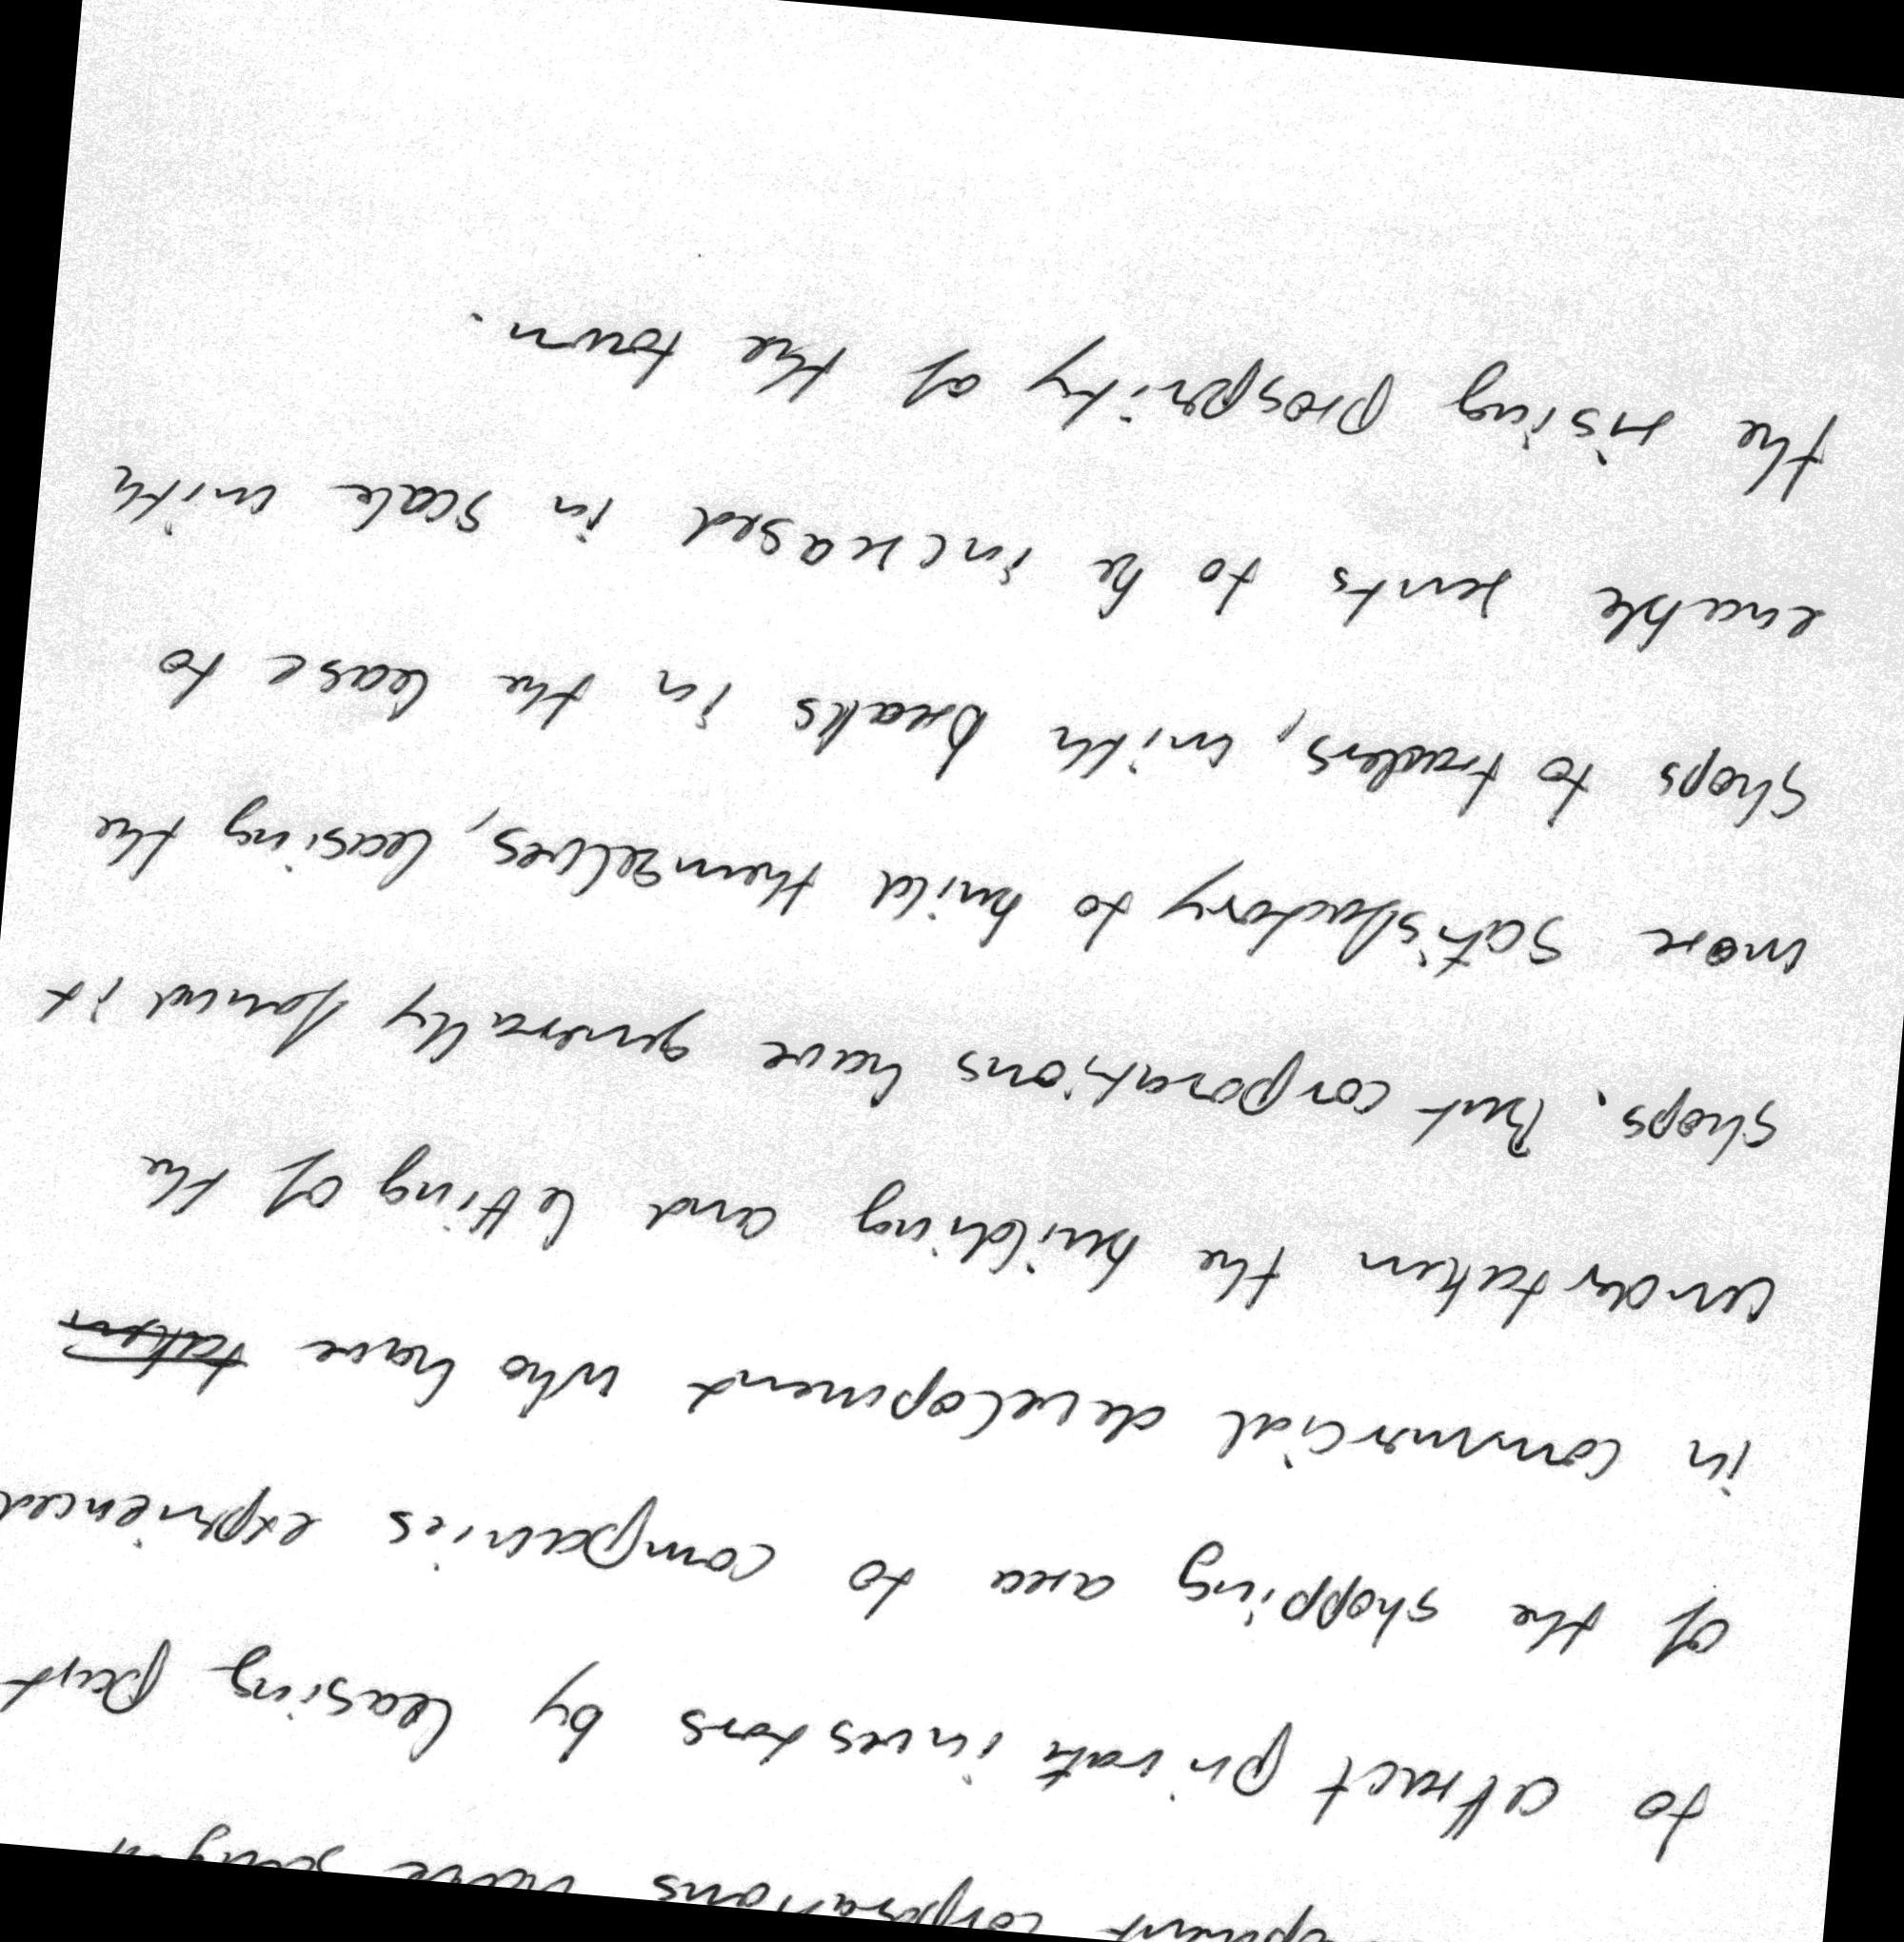 corporations have sought
to attract private investors by leasing part
of the shopping area to companies experienced
in commercial development who have taken
undertaken the building and letting of the
shops. But corporations have generally found it
more satisfactory to build themselves, leasing the
shops to traders, with breaks in the lease to
enable rents to be increased in scale with
the rising prosperity of the town.